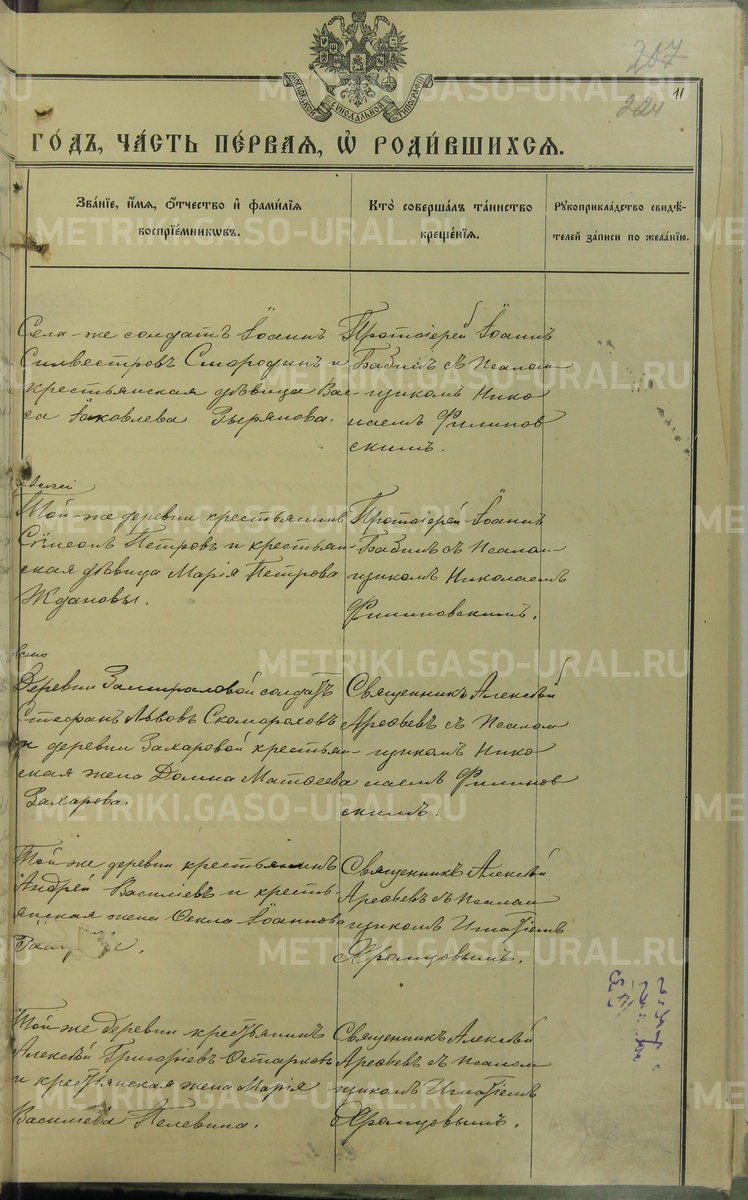 207
224
11
МОСКОВСКОЙ СѴНОДАЛЬНОЙ ТИПОГРАФІИ
METRIKI.GASO-URAL.RU
ГО́ДЪ, ЧА́СТЬ ПЕ́РВАЯ, Ѡ҆ РОДИ́ВШИХСЯ.
Зва́нїе, и҆́мя, ѻ҆́тчество и҆ фами́лїя
воспрїе́мникѡвъ.
Кто̀ соверша́лъ та́инство
креще́нїя.
Рꙋкоприкла́дство свидѣ́-
телей за́писи по жела́нїю.
Села-же солдатъ Іоаннъ
Силвестровъ Смородинъ и
крестьянская дѣвица Вас-
са Іаковлева Зырянова.
Протоіерей Іоаннъ
Бабинъ съ Псалом-
щикомъ Нико
лаемъ Филинов
скимъ.
Той-же деревни крестьянинъ
Сѵмеонъ Петровъ и крестьян-
ская дѣвица Марія Петрова
Ждановы.
Протоіерей Іоаннъ
Бабинъ съ Псалом-
щикомъ Николаемъ
Филиновскимъ.
Деревни солдатъ
Стефанъ Львовъ Скомороховъ
и деревни Захаровой крестьян-
ская жена Домна Матѳеева
Захарова.
Священникъ Алексѣй
Арефьевъ съ Псалом
щикомъ Нико
лаемъ Филинов
скимъ.
Той же деревни крестьянинъ
Андрей Василіевъ и кресть-
янская жена Ѳекла Іоаннова
Священникъ Алексѣй
Арефьевъ съ Псалом
щикомъ Игнатіемъ
Храмцовымъ.
Той же деревни крестьянинъ
Алексѣй Григоріевъ Остарковъ
и крестьянская жена Марія
Василіева Пелевина.
Священникъ Алексѣй
Арефьевъ съ Псалом
щикомъ Игнатіемъ
Храмцовымъ.